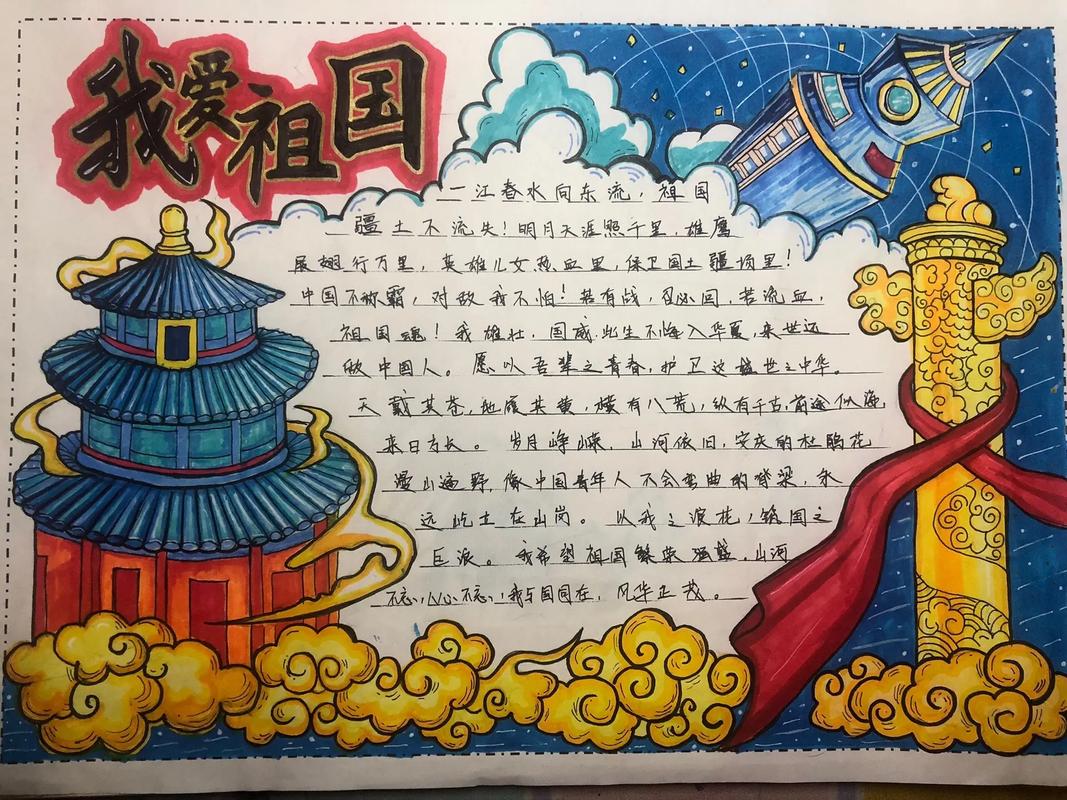 我爱祖国
一江春水向东流，祖国
疆土不流失！明月天涯照千里，雄鹰
展翅行万里，英雄儿女热血里，保卫国土疆场里！
中国不称霸，对敌我不怕！若有战，召必回，若流血，
祖国魂！我雄壮，国威，此生不悔入华夏，来世还
做中国人。愿以吾辈之青春，护卫这盛世之中华。
天戴其苍，地履其黄，横有八荒，纵有千古，前途似海，
来日方长。岁月峥嵘，山河依旧，安庆的杜鹃花
漫山遍野，像中国青年人不会弯曲的脊梁，永
远屹立在山岗。以我之浪花，铸国之
巨浪。我希望祖国繁荣强盛，山河
不忘，心不忘，我与国同在，风华正茂。